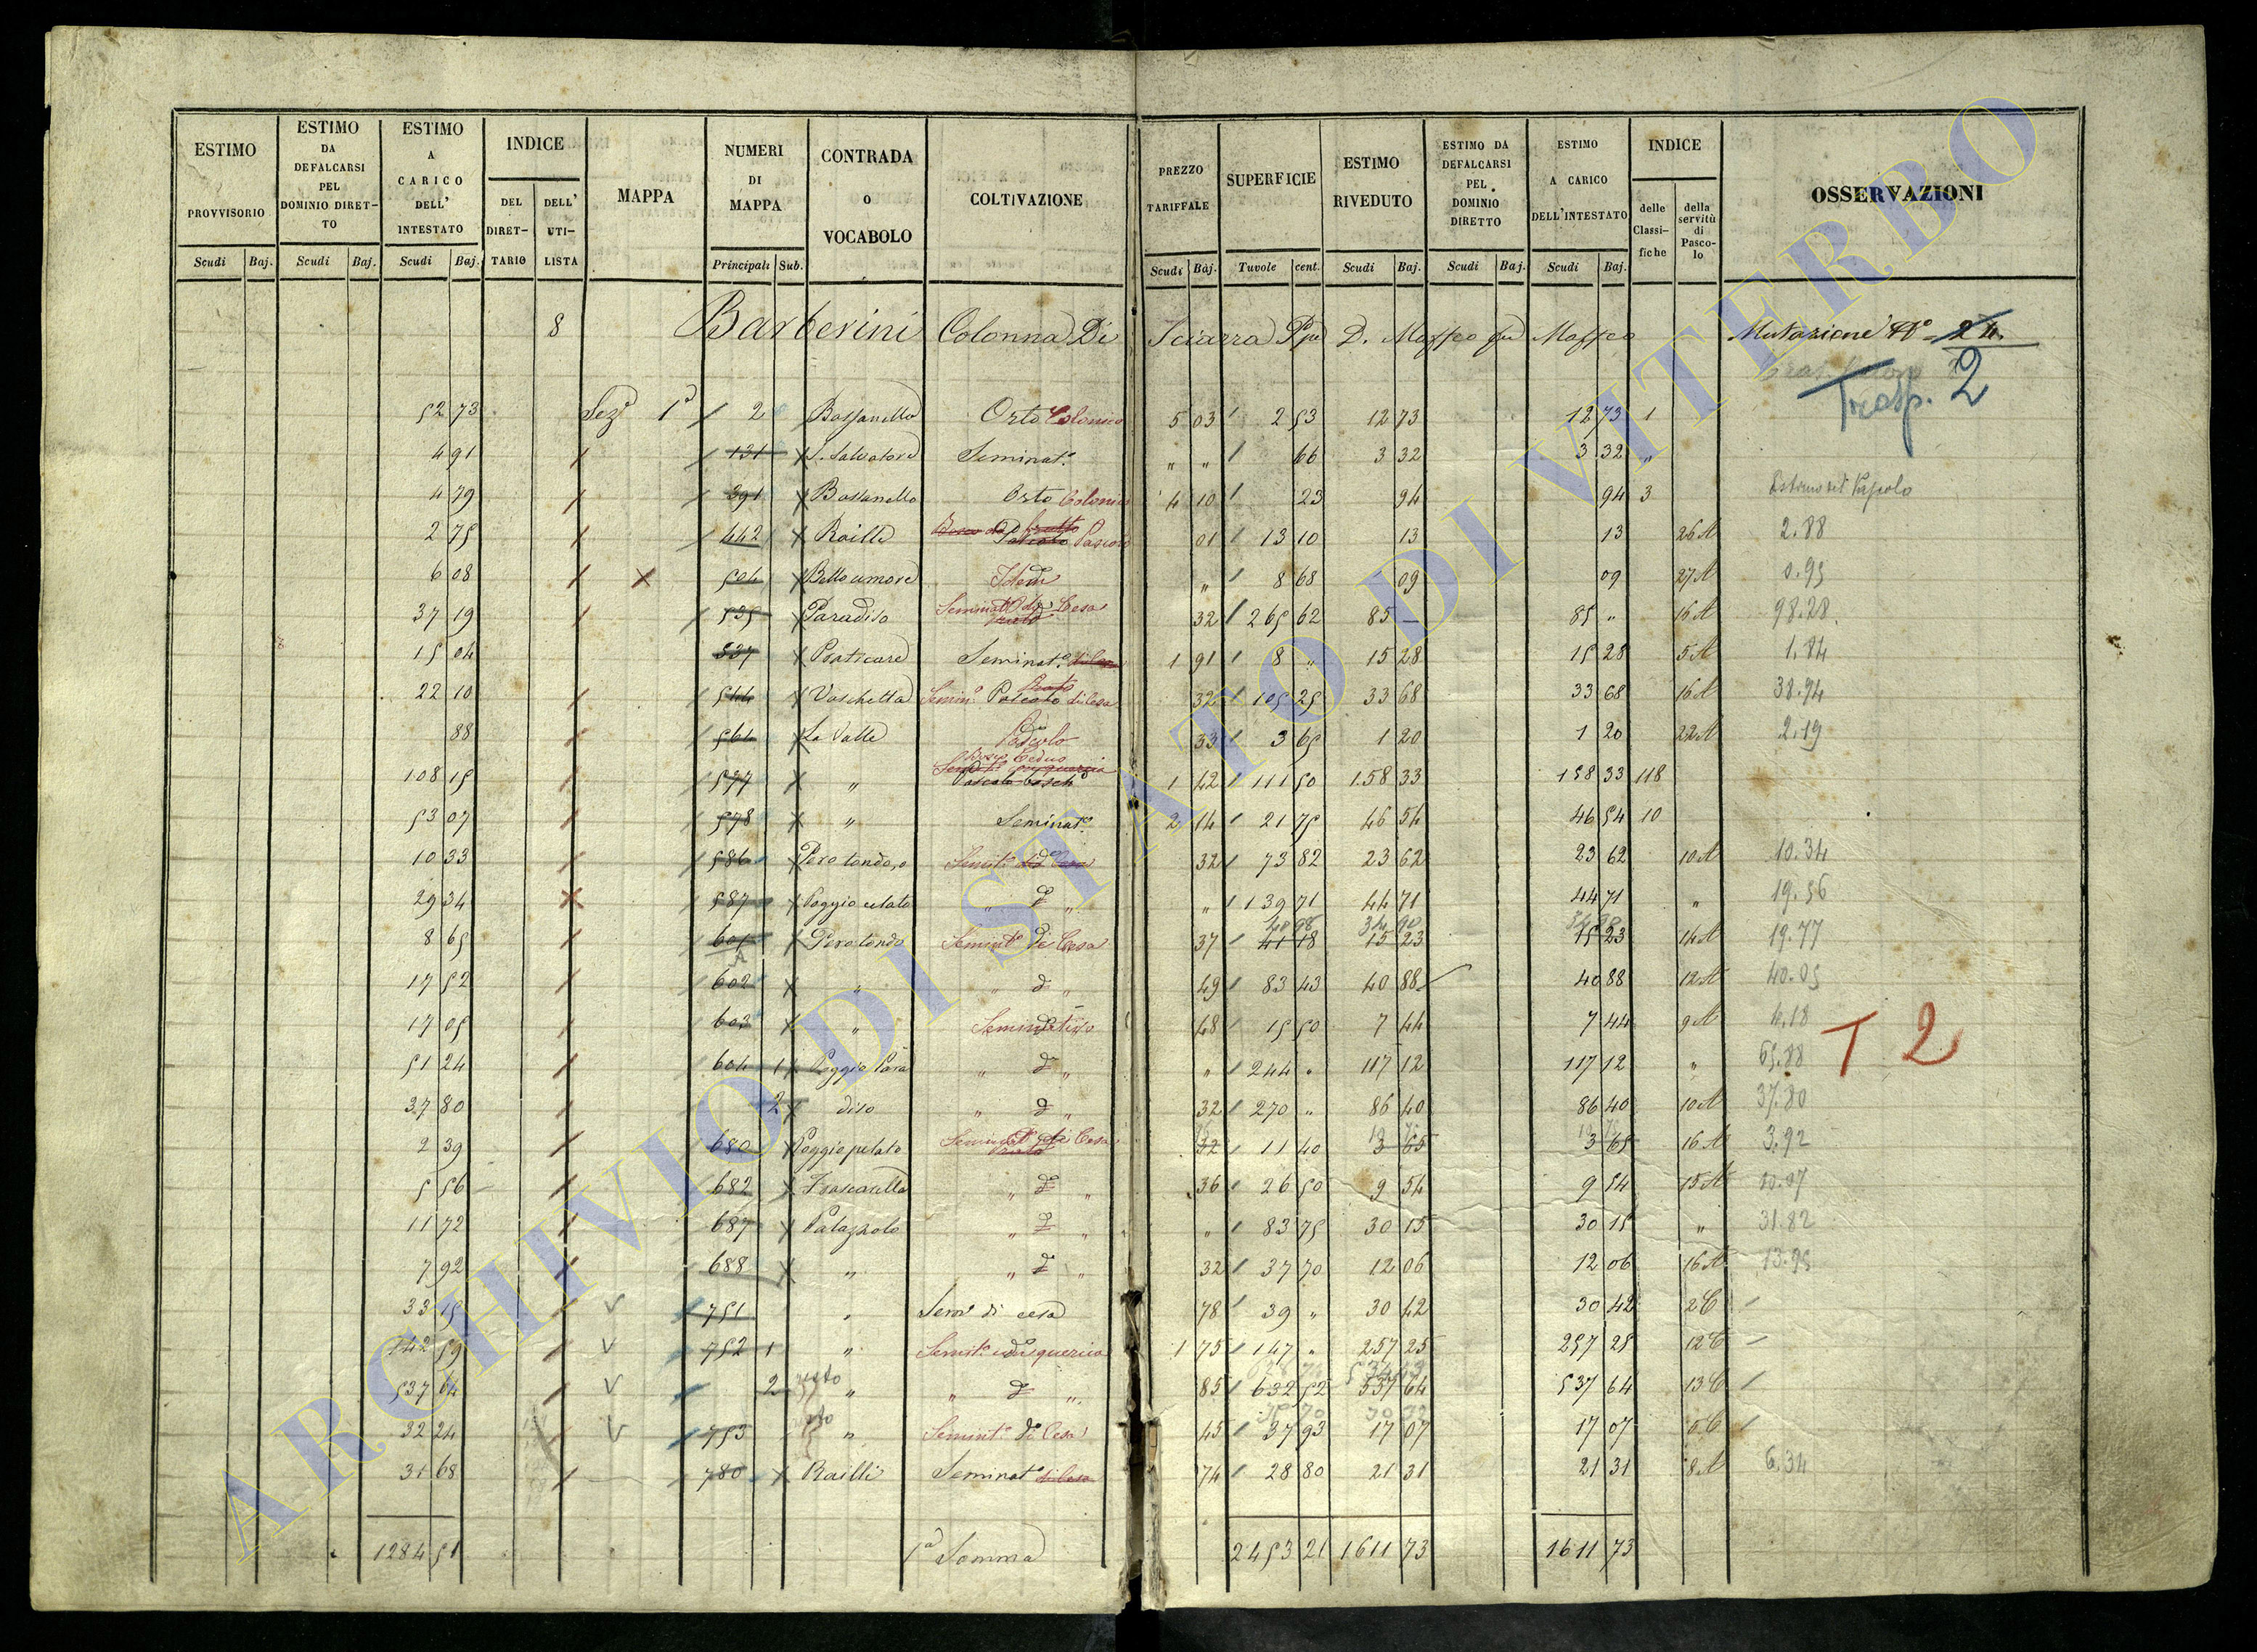 ESTIMO PROVVISORIO Scudi Baj.
ESTIMO DA DEFALCARSI PEL DOMINIO DIRET-TO Scudi Baj.
ESTIMO A CARICO DELL' INTESTATO Scudi Baj.
INDICE DEL DIRET-TARIO DELL' UTI-LISTA
MAPPA
NUMERI DI MAPPA Principali Sub.
CONTRADA o VOCABOLO
COLTIVAZIONE
PREZZO TARIFFALE Scudi Baj.
SUPERFICIE Tavole cent.
ESTIMO RIVEDUTO Scudi Baj.
ESTIMO DA DEFALCARSI PEL DOMINIO DIRETTO Scudi Baj.
ESTIMO A CARICO DELL'INTESTATO Scudi Baj.
INDICE delle Classi-fiche della servitù di Pasco-lo
OSSERVAZIONI
8 Barberini Colonna Di Sciarra D. Maffeo fu Maffeo Mutazione N° 2
Trasp. 2
52 73 Sez. 1a 2 Bassanello Orto Colonico 5 03 2 53 12 73 12 73 1
4 91 131 S. Salvatore Seminat.o " " 66 3 32 3 32 "
4 79 391 Bassanello Orto Colonico 4 10 23 94 94 3
2 75 442 Roille Pascolo 01 13 10 13 13 26 A 2.88
6 08 504 Bellocumore Idem " 8 68 09 09 27 A 0.95
37 19 535 Paradiso Seminat.o di Cesa 32 265 62 85 — 85 " 16 A 98.28
15 04 537 Praticare Seminat.o 1 91 8 " 15 28 15 28 5 A 1.84
22 10 544 Vaschetta Semin.o Pascolo di Cesa 32 105 25 33 68 33 68 16 A 38.94
88 564 La Valle Pascolo 33 3 65 1 20 1 20 22 A 2.19
108 15 577 " Bosco Ceduo 1 42 111 50 158 33 158 33 118
53 07 578 " Seminat.o 2 14 21 75 46 54 46 54 10
10 33 586 Perotondo Semit.o di Cesa 32 73 82 23 62 23 62 10 A 10.34
29 34 587 Poggio celato " d.o " " 139 71 44 71 44 71 " 19.56
8 65 601 Perotondo Semint.o di Cesa 37 41 18 15 23 15 23 14 A 19.77
17 52 602 " " d.o " 49 83 43 40 88 40 88 12 A 40.05
17 05 603 " Seminativo 48 15 50 7 44 7 44 9 A 4.18
51 24 604 1 Poggio Para " d.o " " 244 " 117 12 117 12 " 65.88
37 80 2 diso " d.o " 32 270 " 86 40 86 40 10 A 37.80
2 39 680 Poggio pelato Seminat.o di Cesa 32 11 40 3 65 3 65 16 A 3.92
5 56 682 Frascarella " d.o " 36 26 50 9 54 9 54 15 A 10.07
11 72 687 Palazzolo " d.o " " 83 75 30 15 30 15 " 31.82
7 92 688 " " d.o " 32 37 70 12 06 12 06 16 A 13.95
33 15 751 " Sem.o di cesa 78 39 " 30 42 30 42 2 C
142 59 752 1 " 1 75 147 " 257 25 257 25 12 C
537 64 2 resto " " d.o " 85 632 52 537 64 537 64 13 C
32 24 753 " Semint.o di Cesa 45 37 93 17 07 17 07
31 68 780 Roilli Seminat.o di Cesa 74 28 80 21 31 21 31 8 A 6.34
T 2
1284 51 1a Somma 2453 21 1611 73 1611 73
ARCHIVIO DI STATO DI VITERBO